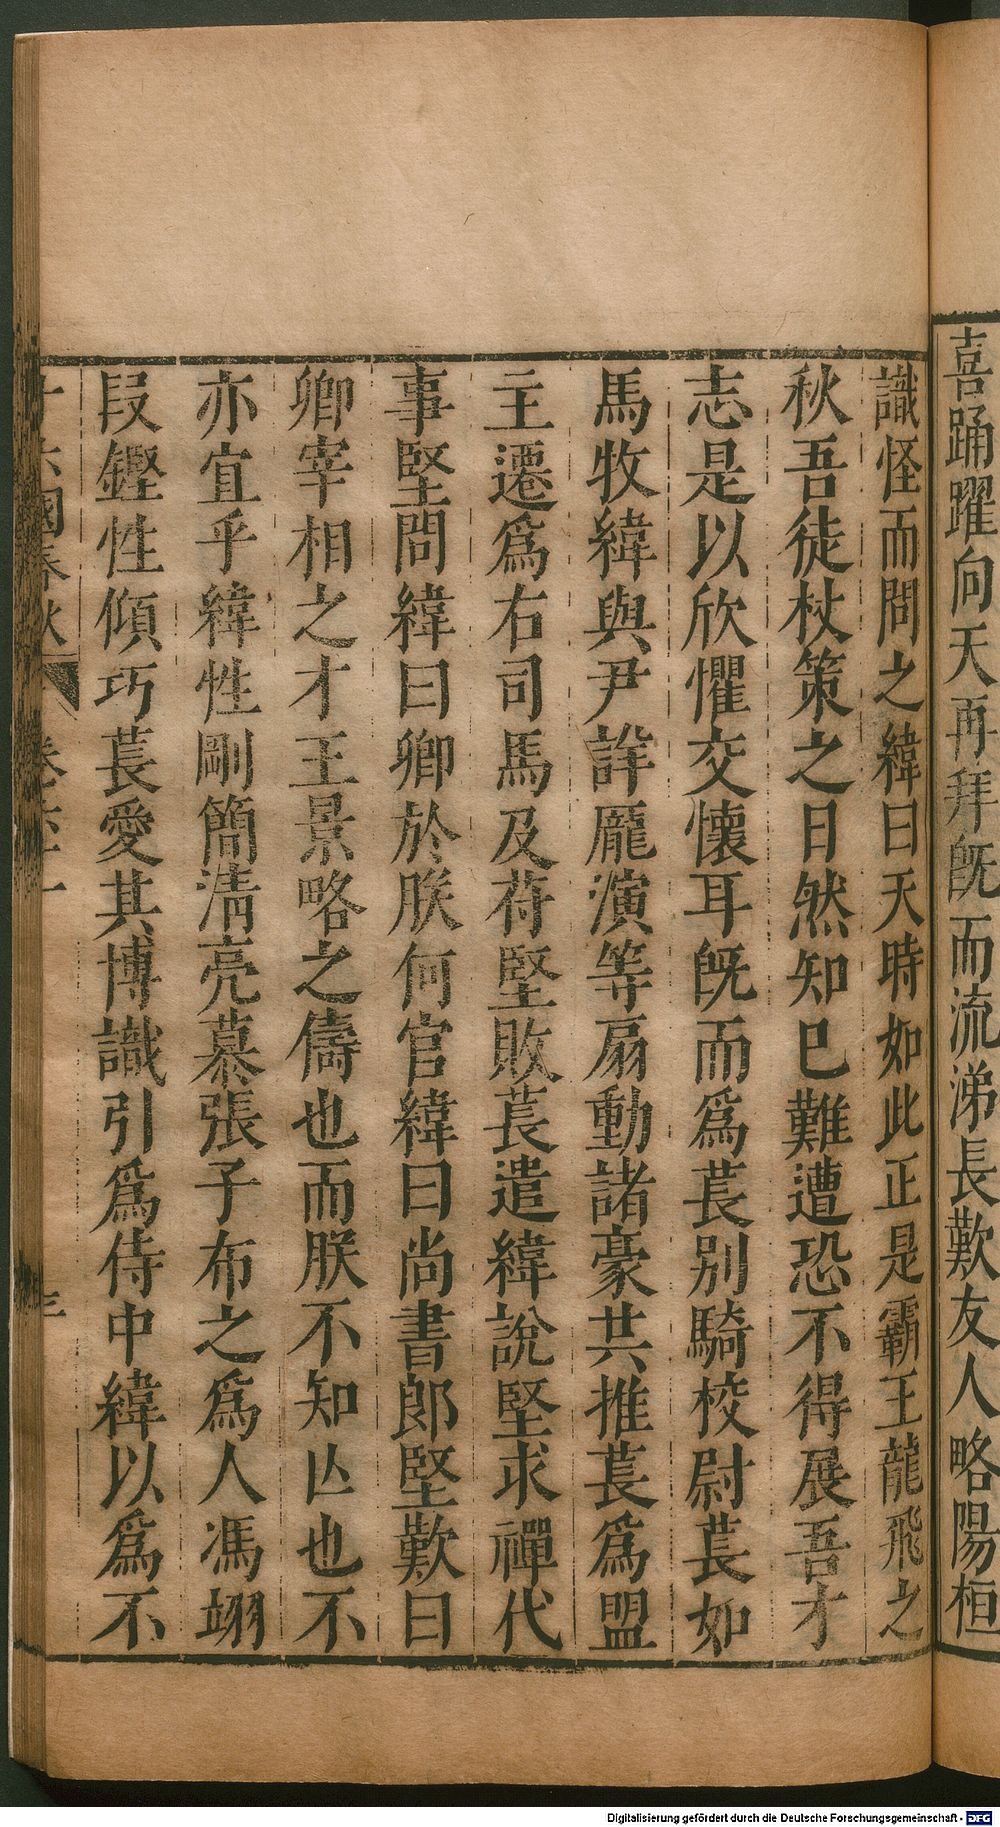 喜踊躍向天再拜旣而流涕長歎友人略陽桓
識怪而問之緯曰天時如此正是霸王龍飛之
秋吾徒杖策之日然知已難遭恐不得展吾才
志是以欣懼交懷耳旣而爲萇別騎校尉萇如
馬牧緯與尹詳龐演等扇動諸豪共推萇爲盟
主遷爲右司馬及苻堅敗萇遣緯說堅求禪代
事堅問緯曰卿於朕何官緯曰尚書郎堅歎曰
卿宰相之才王景略之儔也而朕不知亾也不
亦宜乎緯性剛簡清亮慕張子布之爲人馮翊
段鏗性傾巧萇愛其博識引爲侍中緯以爲不
十六國春秋
Digitalisierung gefördert durch die Deutsche Forschungsgemeinschaft - DFG